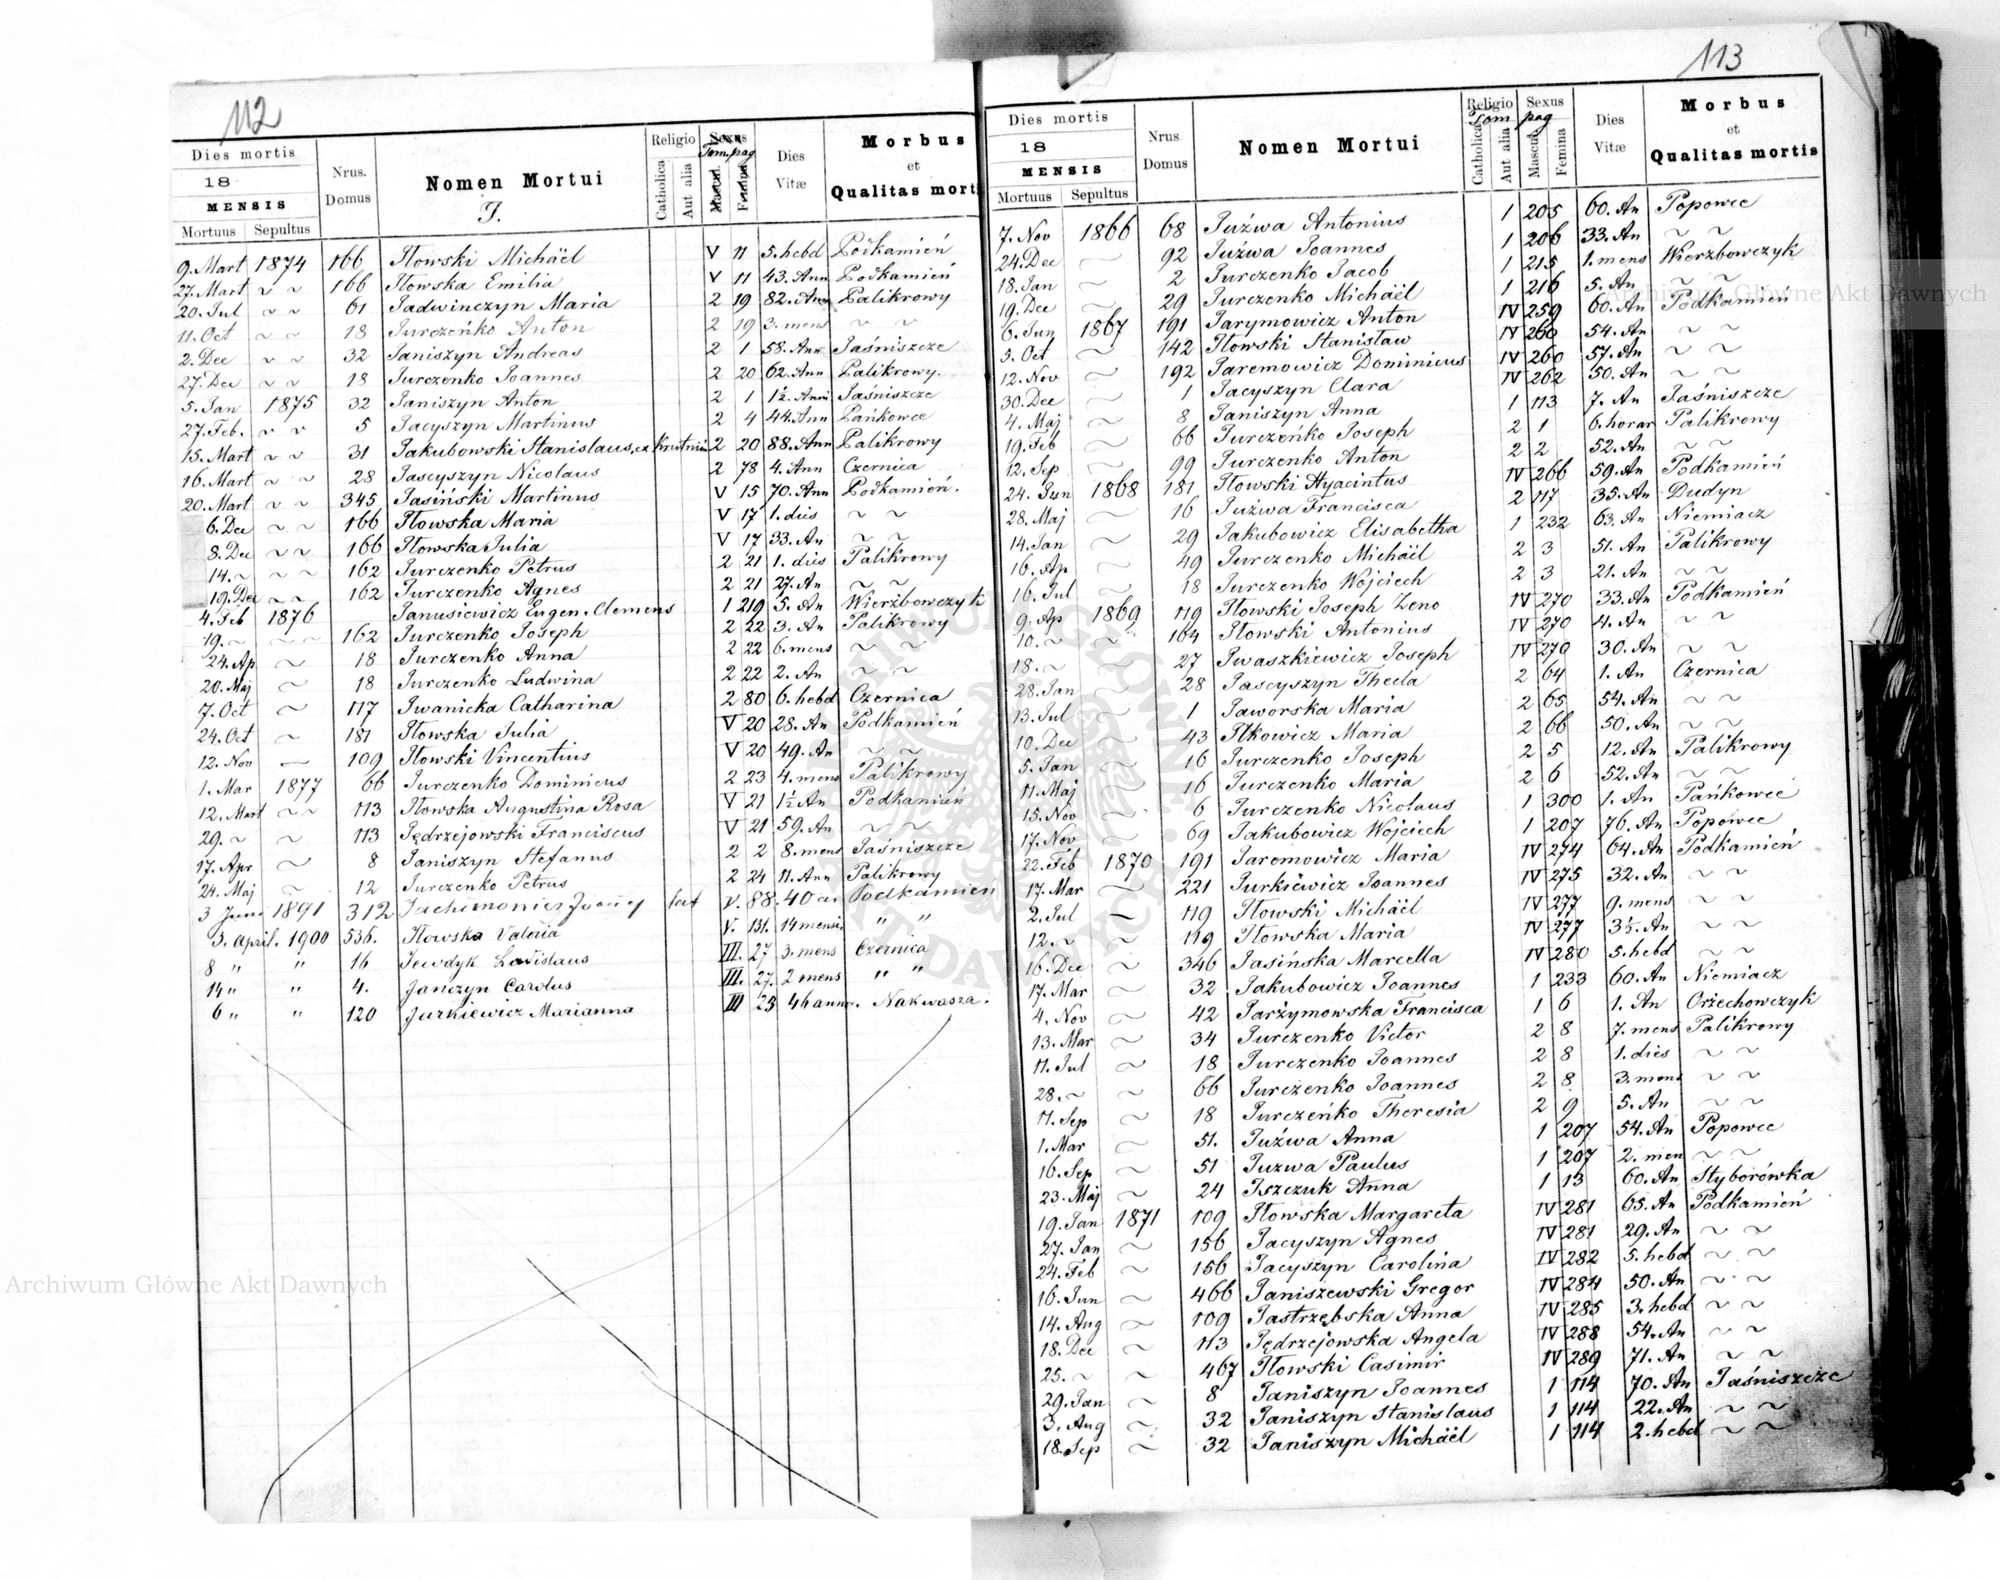 112
Dies mortis
18
MENSIS
Mortuus Sepultus
Nrus. Domus
Nomen Mortui
J.
Religio
Catholica
Aut alia
Sexus
Tom. pag
Mascul.
Femina
Dies Vitæ
Morbus
et
Qualitas morti
9. Mart 1874 166 Iłowski Michäel V 11 5. hebd Podkamień
27. Mart ~ ~ 166 Iłowska Emilia V 11 43. Ann Podkamień
20. Jul ~ ~ 61 Jadwinczyn Maria 2 19 82. Ann Palikrowy
11. Oct ~ ~ 18 Jurczeńko Anton 2 19 3. mens ~ ~
2. Dec ~ ~ 32 Janiszyn Andreas 2 1 58. Ann Jaśniszcze
27. Dec ~ ~ 18 Jurczenko Joannes 2 20 62. Ann Palikrowy.
5. Jan 1875 32 Janiszyn Anton 2 1 1½. Ann Jaśniszcze
27. Feb. ~ ~ 5 Jacyszyn Martinus 2 4 44. Ann Pańkowce
15. Mart ~ ~ 31 Jakubowski Stanislaus, ex 2 20 88. Ann Palikrowy
16. Mart ~ ~ 28 Jascyszyn Nicolaus 2 78 4. Ann Czernica
20. Mart ~ ~ 345 Jasiński Martinus V 15 70. Ann Podkamień.
6. Dec ~ ~ 166 Iłowska Maria V 17 1. dies ~ ~
8. Dec ~ ~ 166 Iłowska Julia V 17 33. An ~ ~
14. ~ ~ ~ 162 Jurczenko Petrus 2 21 1. dies Palikrowy
19. Dec ~ ~ 162 Jurczenko Agnes 2 21 27. An ~ ~
4. Feb 1876 Janusiewicz Eugen. Clemens 1 219 5. An Wierzbowczyk
19. ~ ~ ~ 162 Jurczenko Joseph 2 22 3. An Palikrowy
24. Ap ~ 18 Jurczenko Anna 2 22 6. mens ~ ~
20. Maj ~ 18 Jurczenko Ludwina 2 22 2. An ~ ~
7. Oct ~ 117 Iwanicka Catharina 2 80 6. hebd Czernica
24. Oct ~ 181 Iłowska Julia V 20 28. An Podkamień
12. Nov ~ 109 Iłowski Vincentius V 20 49. An ~ ~
1. Mar 1877 66 Jurczenko Dominicus 2 23 4. mens Palikrowy
12. Mart ~ ~ 113 Iłowska Augustina Rosa V 21 1½ An Podkamień
29. ~ ~ 113 Jędrzejowski Franciscus V 21 59. An ~ ~
17. Apr ~ 8 Janiszyn Stefanus 2 2 8. mens Jaśniszcze
24. Maj ~ 12 Jurczenko Petrus 2 24 11. Ann Palikrowy
3 Juni 1891 312 V. 88. 40 an Podkamień
3. April. 1900 536. Iłowska Valeria V. 131. 14 mensi. " "
8 " " 16 Jewdyk Ladislaus III. 27 3. mens Czernica
14 " " 4. Janczyn Carolus III. 27. 2 mens " "
6 " " 120 Jurkiewicz Marianna III 23 46 annor. Nakwasza.
113
Dies mortis
18
MENSIS
Mortuus Sepultus
Nrus Domus
Nomen Mortui
Religio
Tom
Catholica
Aut alia
Sexus
pag
Mascul.
Femina
Dies Vitæ
Morbus
et
Qualitas mortis
7. Nov 1866 68 Juźwa Antonius 1 205 60. An Popowce
24. Dec ~ 92 Juźwa Joannes 1 206 33. An ~ ~
18. Jan ~ 2 Jurczenko Jacob 1 215 1. mens Wierzbowczyk
19. Dec ~ 29 Jurczenko Michäel 1 216 5. An ~ ~
6. Jun 1867 191 Jarymowicz Anton IV 259 60. An Podkamień
5. Oct ~ 142 Iłowski Stanisław IV 260 54. An ~ ~
12. Nov ~ 192 Jaremowicz Dominicus IV 260 57. An ~ ~
30. Dec ~ 1 Jacyszyn Clara IV 262 50. An ~ ~
4. Maj ~ 8 Janiszyn Anna 1 113 7. An Jaśniszcze
19. Feb ~ 66 Jurczeńko Joseph 2 1 6. horar Palikrowy
12. Sep ~ 99 Jurczenko Anton 2 2 52. An ~ ~
24. Jun 1868 181 Iłowski Hyacintus IV 266 59. An Podkamień
28. Maj ~ 16 Juźwa Francisca 2 117 35. An Dudyn
14. Jan ~ 29 Jakubowicz Elisabetha 1 232 63. An Niemiacz
16. Ap ~ 49 Jurczenko Michäel 2 3 51. An Palikrowy
16. Jul ~ 18 Jurczenko Wojciech 2 3 21. An ~ ~
9. Ap 1869 119 Iłowski Joseph Zeno IV 270 33. An Podkamień
10. ~ ~ 164 Iłowski Antonius IV 270 4. An ~ ~
18. ~ ~ 27 Iwaszkiewicz Joseph IV 270 30. An ~ ~
28. Jan ~ 28 Jascyszyn Thecla 2 64 1. An Czernica
13. Jul ~ 1 Jaworska Maria 2 65 54. An ~ ~
10. Dec ~ 43 Itkowicz Maria 2 66 50. An ~ ~
5. Jan ~ 16 Jurczenko Joseph 2 5 12. An Palikrowy
11. Maj ~ 16 Jurczenko Maria 2 6 52. An ~ ~
15. Nov ~ 6 Jurczenko Nicolaus 1 300 1. An Pańkowce
17. Nov ~ 69 Jakubowicz Wojciech 1 207 76. An Popowce
22. Feb 1870 191 Jaremowicz Maria IV 274 64. An Podkamień
17. Mar ~ 221 Jurkiewicz Joannes IV 275 32. An ~ ~
2. Jul ~ 119 Iłowski Michäel IV 277 9. mens ~ ~
12. ~ ~ 119 Iłowska Maria IV 277 3½. An ~ ~
16. Dec ~ 346 Jasińska Marcella IV 280 5. hebd ~ ~
17. Mar ~ 32 Jakubowicz Joannes 1 233 60. An Niemiacz
4. Nov ~ 42 Jarżymowska Francisca 1 6 1. An Orżechowczyk
13. Mar ~ 34 Jurczenko Victor 2 8 7. mens Palikrowy
11. Jul ~ 18 Jurczenko Joannes 2 8 1. dies ~ ~
28. ~ ~ 66 Jurczenko Joannes 2 8 3. mens ~ ~
11. Sep ~ 18 Jurczeńko Theresia 2 9 5. An ~ ~
1. Mar ~ 51. Juźwa Anna 1 207 54. An Popowce
16. Sep ~ 51 Juzwa Paulus 1 207 2. men ~ ~
23. Maj ~ 24 Iszczuk Anna 1 13 60. An Styborówka
19. Jan 1871 109 Iłowska Margareta IV 281 65. An Podkamień
27. Jan ~ 156 Jacyszyn Agnes IV 281 29. An ~ ~
24. Feb ~ 156 Jacyszyn Carolina IV 282 5. hebd ~ ~
16. Jun ~ 466 Janiszewski Gregor IV 284 50. An ~ ~
14. Aug ~ 109 Jastrzębska Anna IV 285 3. hebd ~ ~
18. Dec ~ 113 Jędrzejowska Angela IV 288 54. An ~ ~
25. ~ ~ 467 Iłowski Casimir IV 289 71. An ~ ~
29. Jan ~ 8 Janiszyn Joannes 1 114 70. An Jaśniszcze
3. Aug ~ 32 Janiszyn Stanislaus 1 114 22. An ~ ~
18. Sep ~ 32 Janiszyn Michäel 1 114 2. hebd ~ ~
Archiwum Główne Akt Dawnych
Archiwum Główne Akt Dawnych